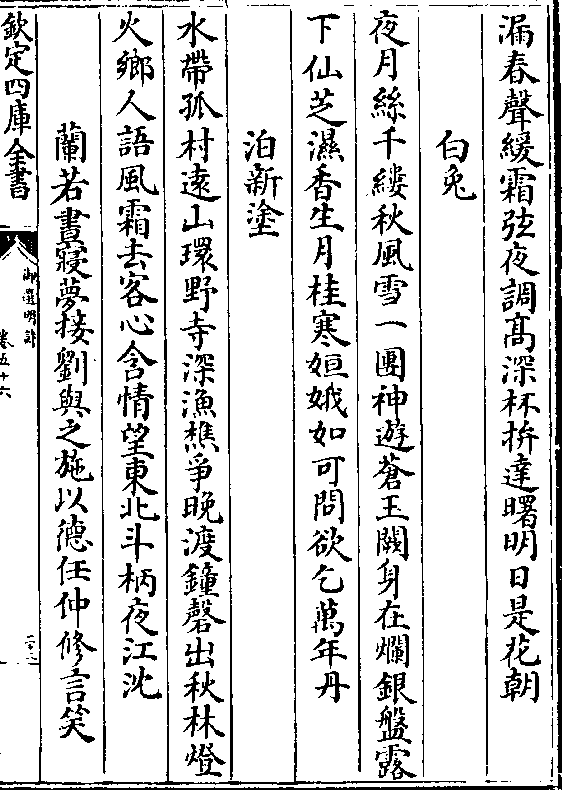 漏春聲緩霜弦夜調髙深杯拚達曙明日是花朝
白兎
夜月絲千縷秋風雪一團神遊蒼玉闕身在爛銀盤露
下仙芝濕香生月桂寒姮娥如可問欲乞萬年丹
泊新塗
水帶孤村逺山環野寺深漁樵爭晩渡鐘磬出秋林燈
火鄉人語風霜去客心含情望東北斗柄夜江沈
蘭若晝寢夢接劉與之施以德任仲修言笑
欽定四庫全書
御選明詩
卷五十六